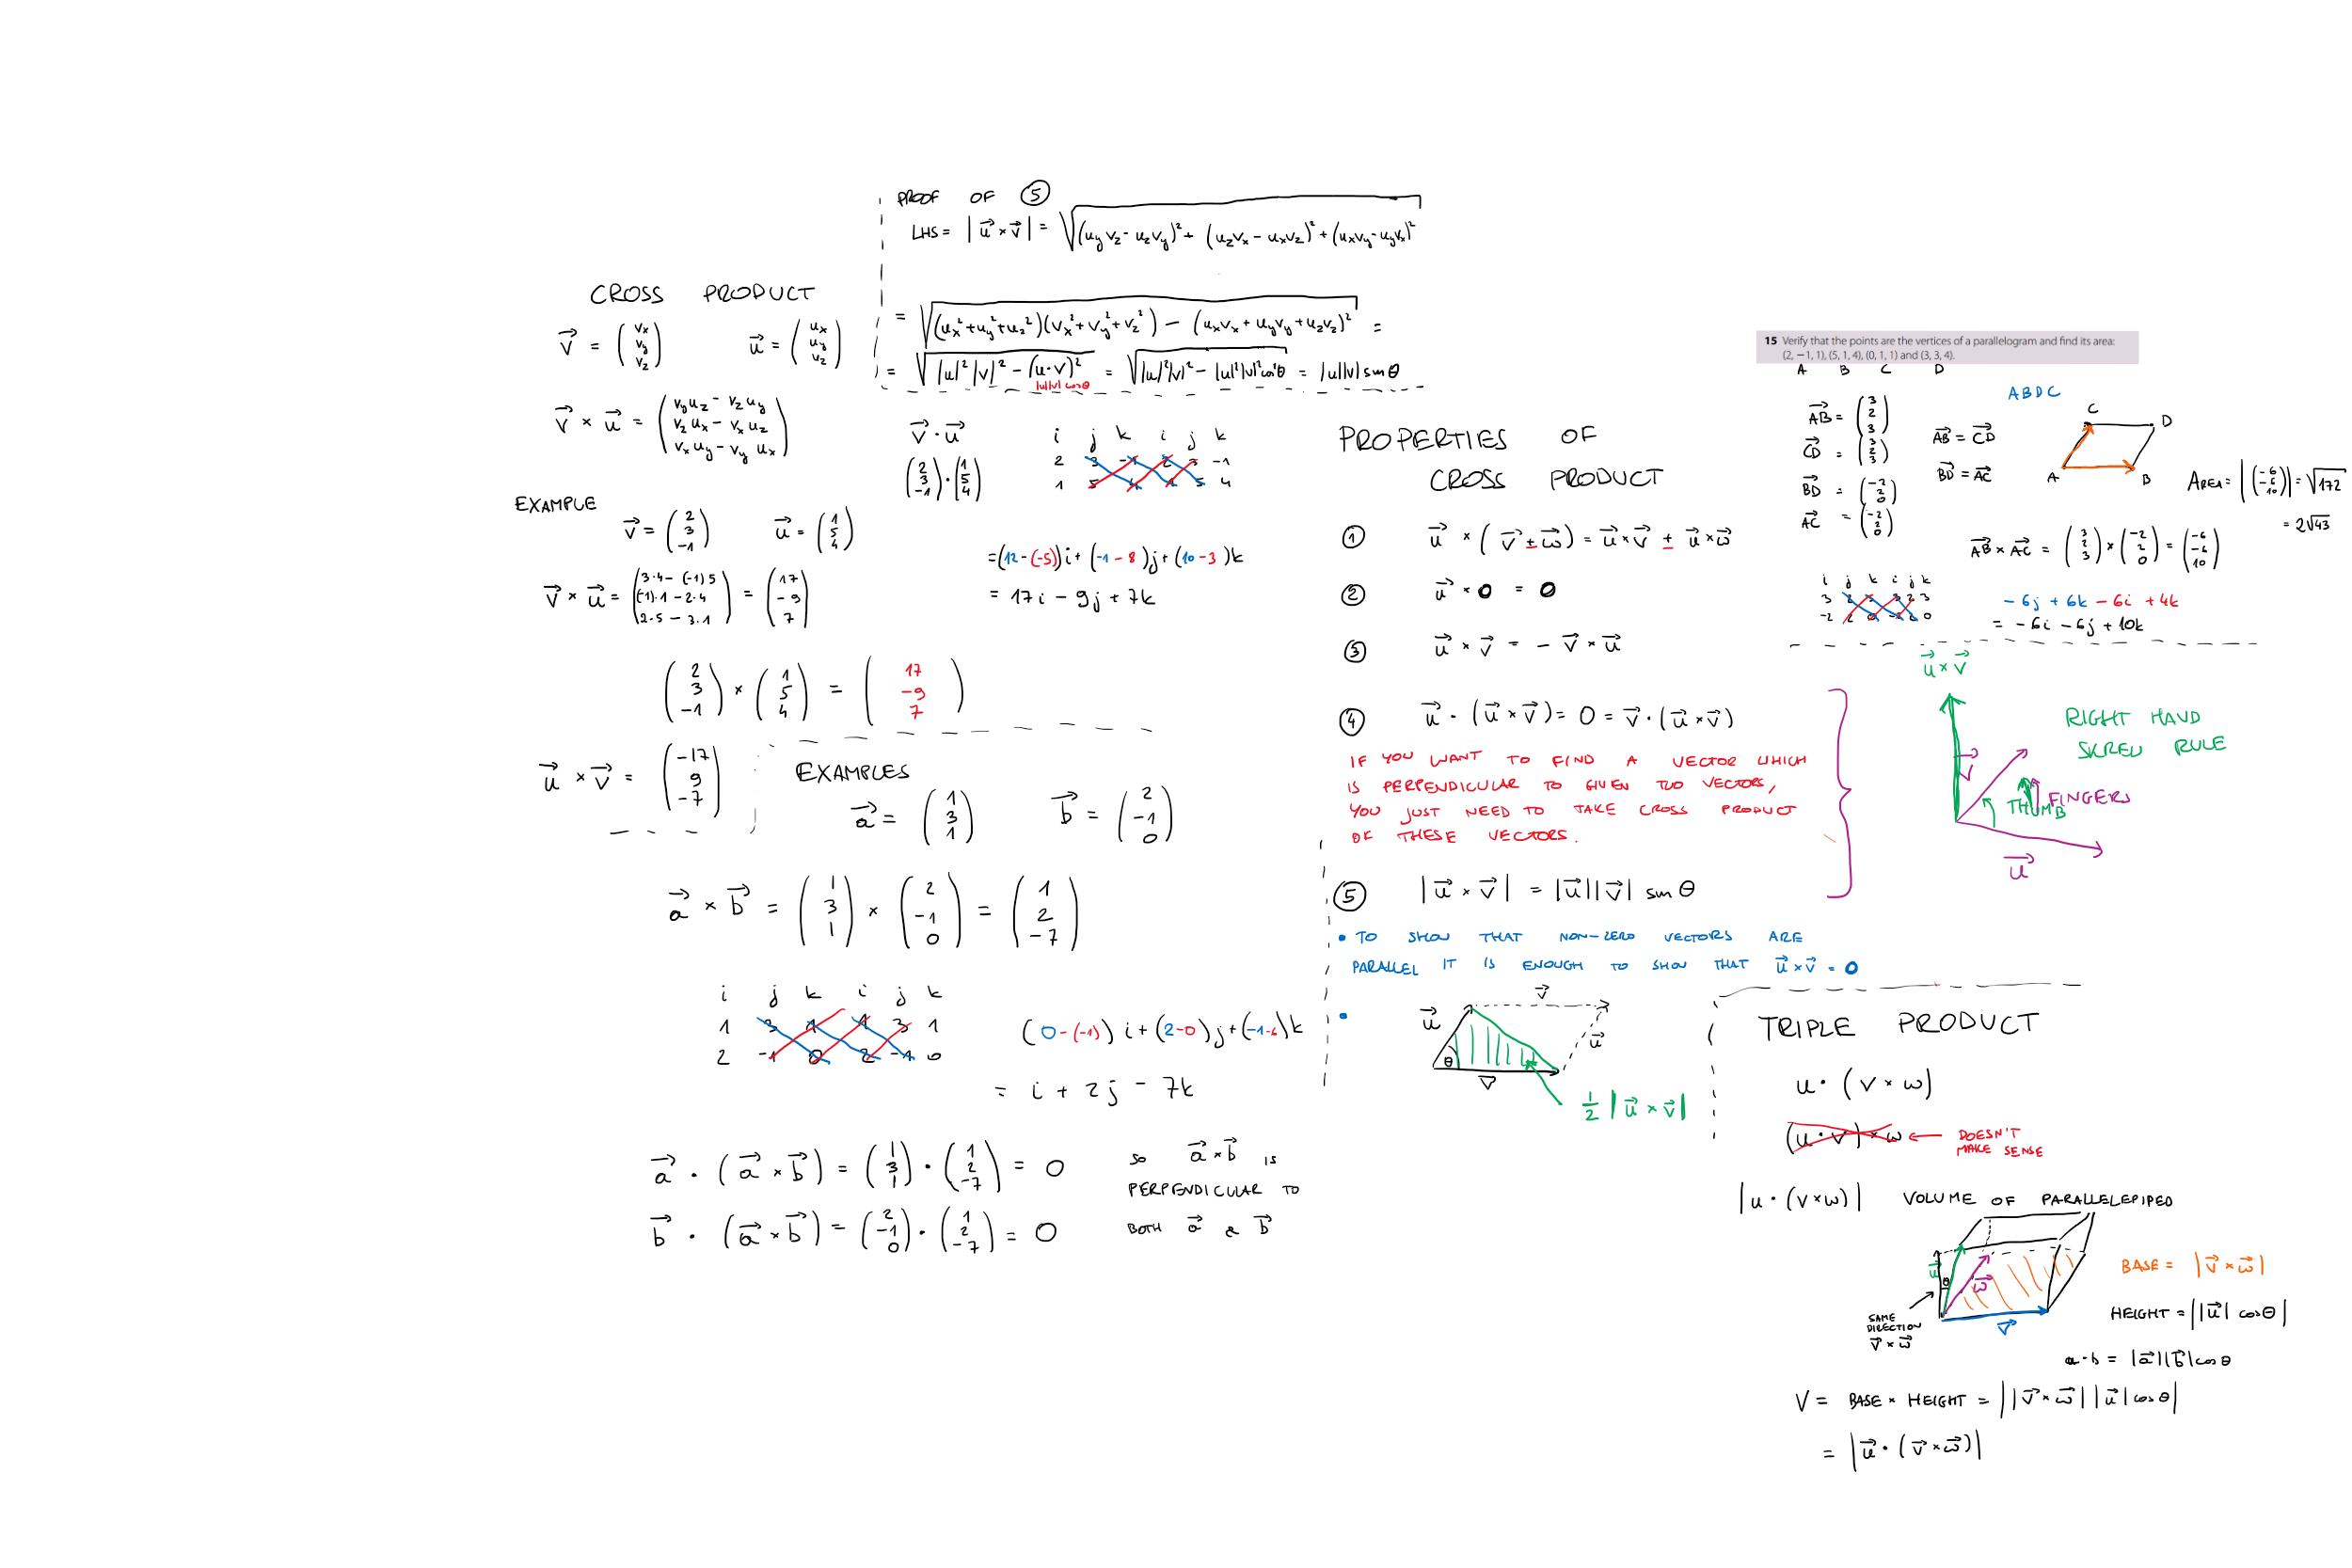 CROSS PRODUCT
v⃗ = (vx vy vz) u⃗ = (ux uy vz)
v⃗ × u⃗ = (vyuz - vzuy
vzux - vxuz
vxuy - vyux)
EXAMPLE
v⃗ = (2 3 -1) u⃗ = (1 5 4)
v⃗ × u⃗ = (3·4 - (-1)5
(-1)·1 - 2·4
2·5 - 3·1) = (17 -9 7)
(2 3 -1) × (1 5 4) = (17 -9 7)
u⃗ × v⃗ = (-17 9 -7)
PROOF OF ⑤
LHS = |u⃗ × v⃗| = √((uyvz - uzvy)² + (uzvx - uxvz)² + (uxvy - uyvx)²
= √((ux² + uy² + uz²)(vx² + vy² + vz²) - (uxvx + uyvy + uzvz)² =
= √(|u|²|v|² - (u·v)² = √(|u|²|v|² - |u|²|v|²cos²θ = |u||v| sin θ
|u||v| cos θ
v⃗ · u⃗
(2 3 -1) · (1 5 4)
i j k i j k
2 3 -1 2 3 -1
1 5 4 1 5 4
= (12 - (-5))i + (-1 - 8)j + (10 - 3)k
= 17i - 9j + 7k
EXAMPLES
a⃗ = (1 3 1) b⃗ = (2 -1 0)
a⃗ × b⃗ = (1 3 1) × (2 -1 0) = (1 2 -7)
i j k i j k
1 3 1 1 3 1
2 -1 0 2 -1 0
(0 - (-1)) i + (2 - 0)j + (-1 - 6)k
= i + 2j - 7k
a⃗ · (a⃗ × b⃗) = (1 3 1) · (1 2 -7) = 0
b⃗ · (a⃗ × b⃗) = (2 -1 0) · (1 2 -7) = 0
so a⃗ × b⃗ is
PERPENDICULAR TO
BOTH a⃗ & b⃗
PROPERTIES OF
CROSS PRODUCT
① u⃗ × (v⃗ ± w⃗) = u⃗ × v⃗ ± u⃗ × w⃗
② u⃗ × 0 = 0
③ u⃗ × v⃗ = - v⃗ × u⃗
④ u⃗ · (u⃗ × v⃗) = 0 = v⃗ · (u⃗ × v⃗)
IF YOU WANT TO FIND A VECTOR WHICH
IS PERPENDICULAR TO GIVEN TWO VECTORS,
YOU JUST NEED TO TAKE CROSS PRODUCT
OF THESE VECTORS.
⑤ |u⃗ × v⃗| = |u⃗||v⃗| sin θ
• TO SHOW THAT NON-ZERO VECTORS ARE
PARALLEL IT IS ENOUGH TO SHOW THAT u⃗ × v⃗ = 0
•
v⃗
u⃗
u⃗
θ
v⃗
1/2 |u⃗ × v⃗|
15 Verify that the points are the vertices of a parallelogram and find its area:
(2, −1, 1), (5, 1, 4), (0, 1, 1) and (3, 3, 4).
A B C D
ABDC
AB⃗ = (3 2 3)
CD⃗ = (3 2 3)
BD⃗ = (-2 2 0)
AC⃗ = (-2 2 0)
AB⃗ = CD⃗
BD⃗ = AC⃗
C D
A B
AREA = |(-6 -6 10)| = √172
= 2√43
AB⃗ × AC⃗ = (3 2 3) × (-2 2 0) = (-6 -6 10)
i j k i j k
3 2 3 3 2 3
-2 2 0 -2 2 0
- 6j + 6k - 6i + 4k
= - 6i - 6j + 10k
u⃗ × v⃗
RIGHT HAND
SKREW RULE
v⃗
FINGERS
THUMB
u⃗
TRIPLE PRODUCT
u · (v × w)
(u · v) × w ← DOESN'T
MAKE SENSE
|u · (v × w)| VOLUME OF PARALLELEPIPED
u⃗
θ
w⃗
v⃗
SAME
DIRECTION
v⃗ × w⃗
BASE = |v⃗ × w⃗|
HEIGHT = ||u⃗| cos θ|
a · b = |a⃗||b⃗| cos θ
V = BASE × HEIGHT = ||v⃗ × w⃗||u⃗| cos θ|
= |u⃗ · (v⃗ × w⃗)|